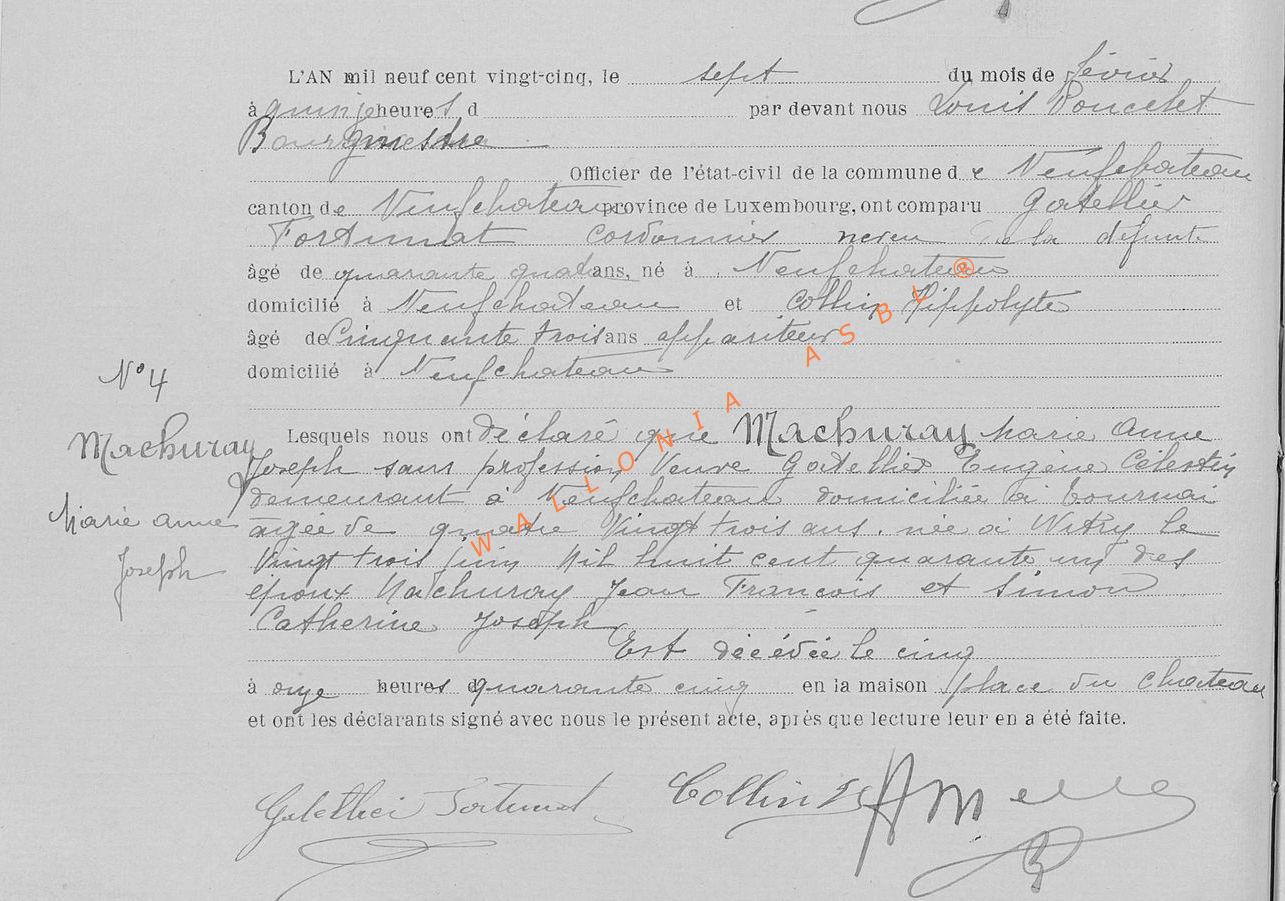 L'AN mil neuf cent vingt-cinq, le sept du mois de février
à quinze heures d par devant nous Louis Poncelet
Bourgmestre
Officier de l'état-civil de la commune de Neufchateau
canton de Neufchateau province de Luxembourg, ont comparu Gatellier
Fortunat cordonnier neveu de la défunte
âgé de quarante quatre ans, né à Neufchateau
domicilié à Neufchateau et Collin Hippolyte
âgé de Cinquante trois ans appariteur
domicilié à Neufchateau
N° 4
Machuray
Marie Anne
Joseph
Lesquels nous ont déclaré que Machuray Marie Anne
Joseph sans profession Veuve Gatellier Eugène Célestin
demeurant à Neufchateau domiciliée à Tournai
agée de quatre Vingt trois ans. née à Witry le
Vingt trois Juin Mil huit cent quarante un des
époux Machuray Jean Francois et Simon
Catherine Joseph
Est décédée le cinq
à onze heures quarante cinq en la maison place du Chateau
et ont les déclarants signé avec nous le présent acte, après que lecture leur en a été faite.
Gatellier Fortunat Collin
WALLONIA ASBL ®